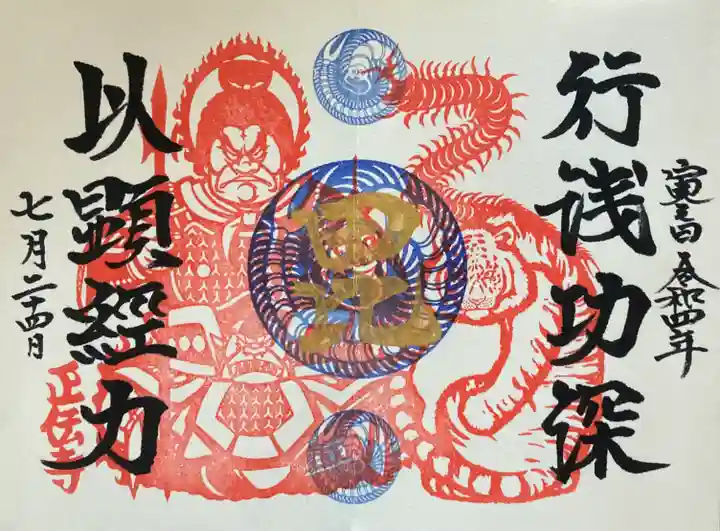 行浅功深
寅之日 令和四年
以顕經力
七月二十四日
正伝寺